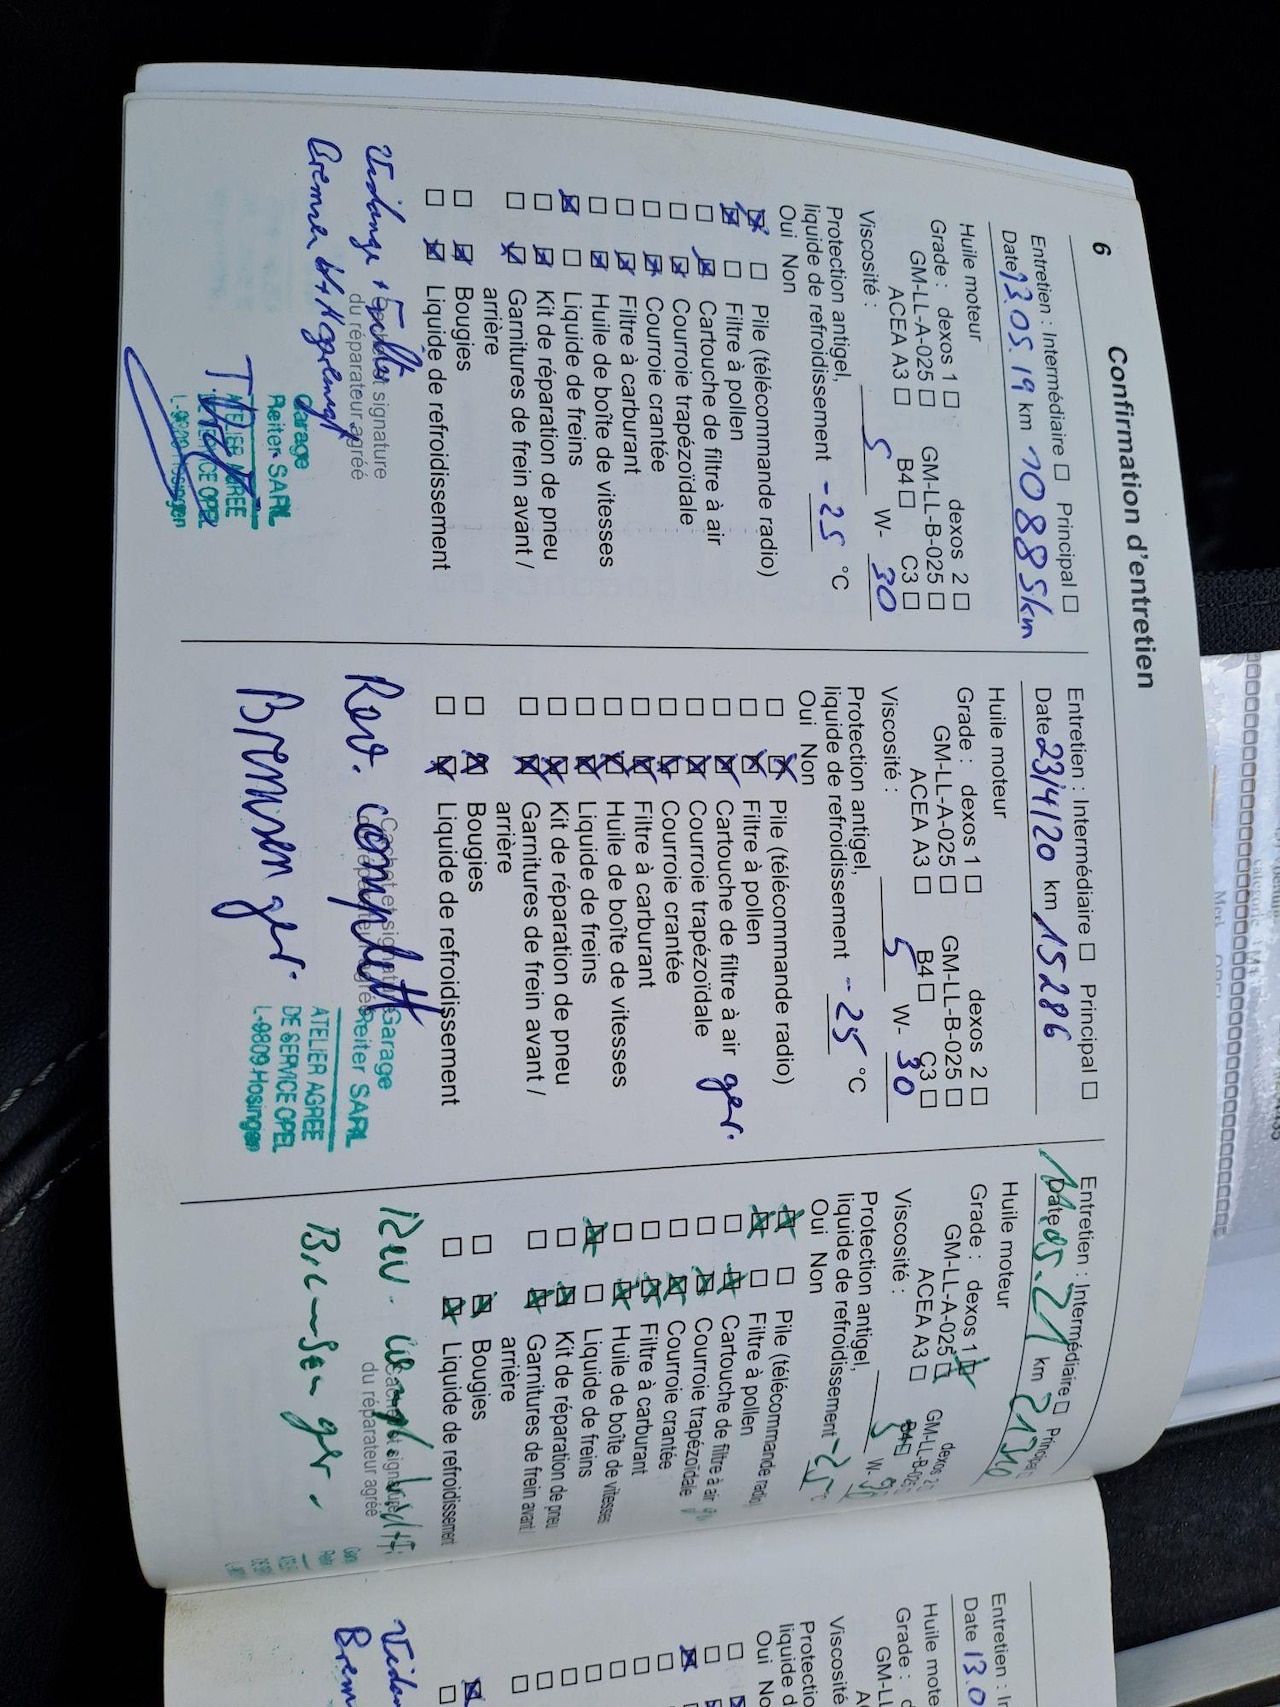 6
Confirmation d'entretien
Entretien : Intermédiaire ☐ Principal ☐
Date 13.05.19 km 10885km
Huile moteur
Grade : dexos 1 ☐ dexos 2 ☐
GM-LL-A-025 ☐ GM-LL-B-025 ☐
ACEA A3 ☐ B4 ☐ C3 ☐
Viscosité : 5 W- 30
Protection antigel,
liquide de refroidissement -25 °C
Oui Non
☒ ☐ Pile (télécommande radio)
☒ ☐ Filtre à pollen
☐ ☒ Cartouche de filtre à air
☐ ☒ Courroie trapézoïdale
☐ ☒ Courroie crantée
☐ ☒ Filtre à carburant
☐ ☒ Huile de boîte de vitesses
☒ ☐ Liquide de freins
☐ ☒ Kit de réparation de pneu
☐ ☒ Garnitures de frein avant /
arrière
☐ ☒ Bougies
☐ ☒ Liquide de refroidissement
Vidange +
signature
du réparateur agréé
Garage
Reiter SARL
ATELIER AGREE
DE SERVICE OPEL
L-9809 Hosingen
Entretien : Intermédiaire ☐ Principal ☐
Date 23/4/20 km 15286
Huile moteur
Grade : dexos 1 ☐ dexos 2 ☐
GM-LL-A-025 ☐ GM-LL-B-025 ☐
ACEA A3 ☐ B4 ☐ C3 ☐
Viscosité : 5 W- 30
Protection antigel,
liquide de refroidissement -25 °C
Oui Non
☐ ☒ Pile (télécommande radio)
☐ ☒ Filtre à pollen
☐ ☒ Cartouche de filtre à air ger.
☐ ☒ Courroie trapézoïdale
☐ ☒ Courroie crantée
☐ ☒ Filtre à carburant
☐ ☒ Huile de boîte de vitesses
☐ ☒ Liquide de freins
☐ ☒ Kit de réparation de pneu
☐ ☒ Garnitures de frein avant /
arrière
☐ ☒ Bougies
☐ ☒ Liquide de refroidissement
Rev. complett
Bremsen ger.
Garage
Reiter SARL
ATELIER AGREE
DE SERVICE OPEL
L-9809 Hosingen
Entretien : Intermédiaire ☐ Principal ☐
Date 11.05.21 km
Huile moteur
Grade : dexos 1 ☒ dexos 2
GM-LL-A-025 ☒ GM-LL-B-025
ACEA A3 ☐ B4 ☐
Viscosité : 5 W- 30
Protection antigel,
liquide de refroidissement -25 °C
Oui Non
☒ ☐ Pile (télécommande radio)
☒ ☐ Filtre à pollen
☐ ☒ Cartouche de filtre à air
☐ ☒ Courroie trapézoïdale
☐ ☒ Courroie crantée
☐ ☒ Filtre à carburant
☐ ☒ Huile de boîte de vitesses
☒ ☐ Liquide de freins
☐ ☒ Kit de réparation de pneu
☐ ☒ Garnitures de frein avant /
arrière
☐ ☒ Bougies
☐ ☒ Liquide de refroidissement
Rev.
Bremsen ger.
du réparateur agréé
Entretien : In
Date 13.0
Huile mote
Grade : d
GM-LL
Viscosité
Protectio
liquide d
Oui No
Vidan
Brem